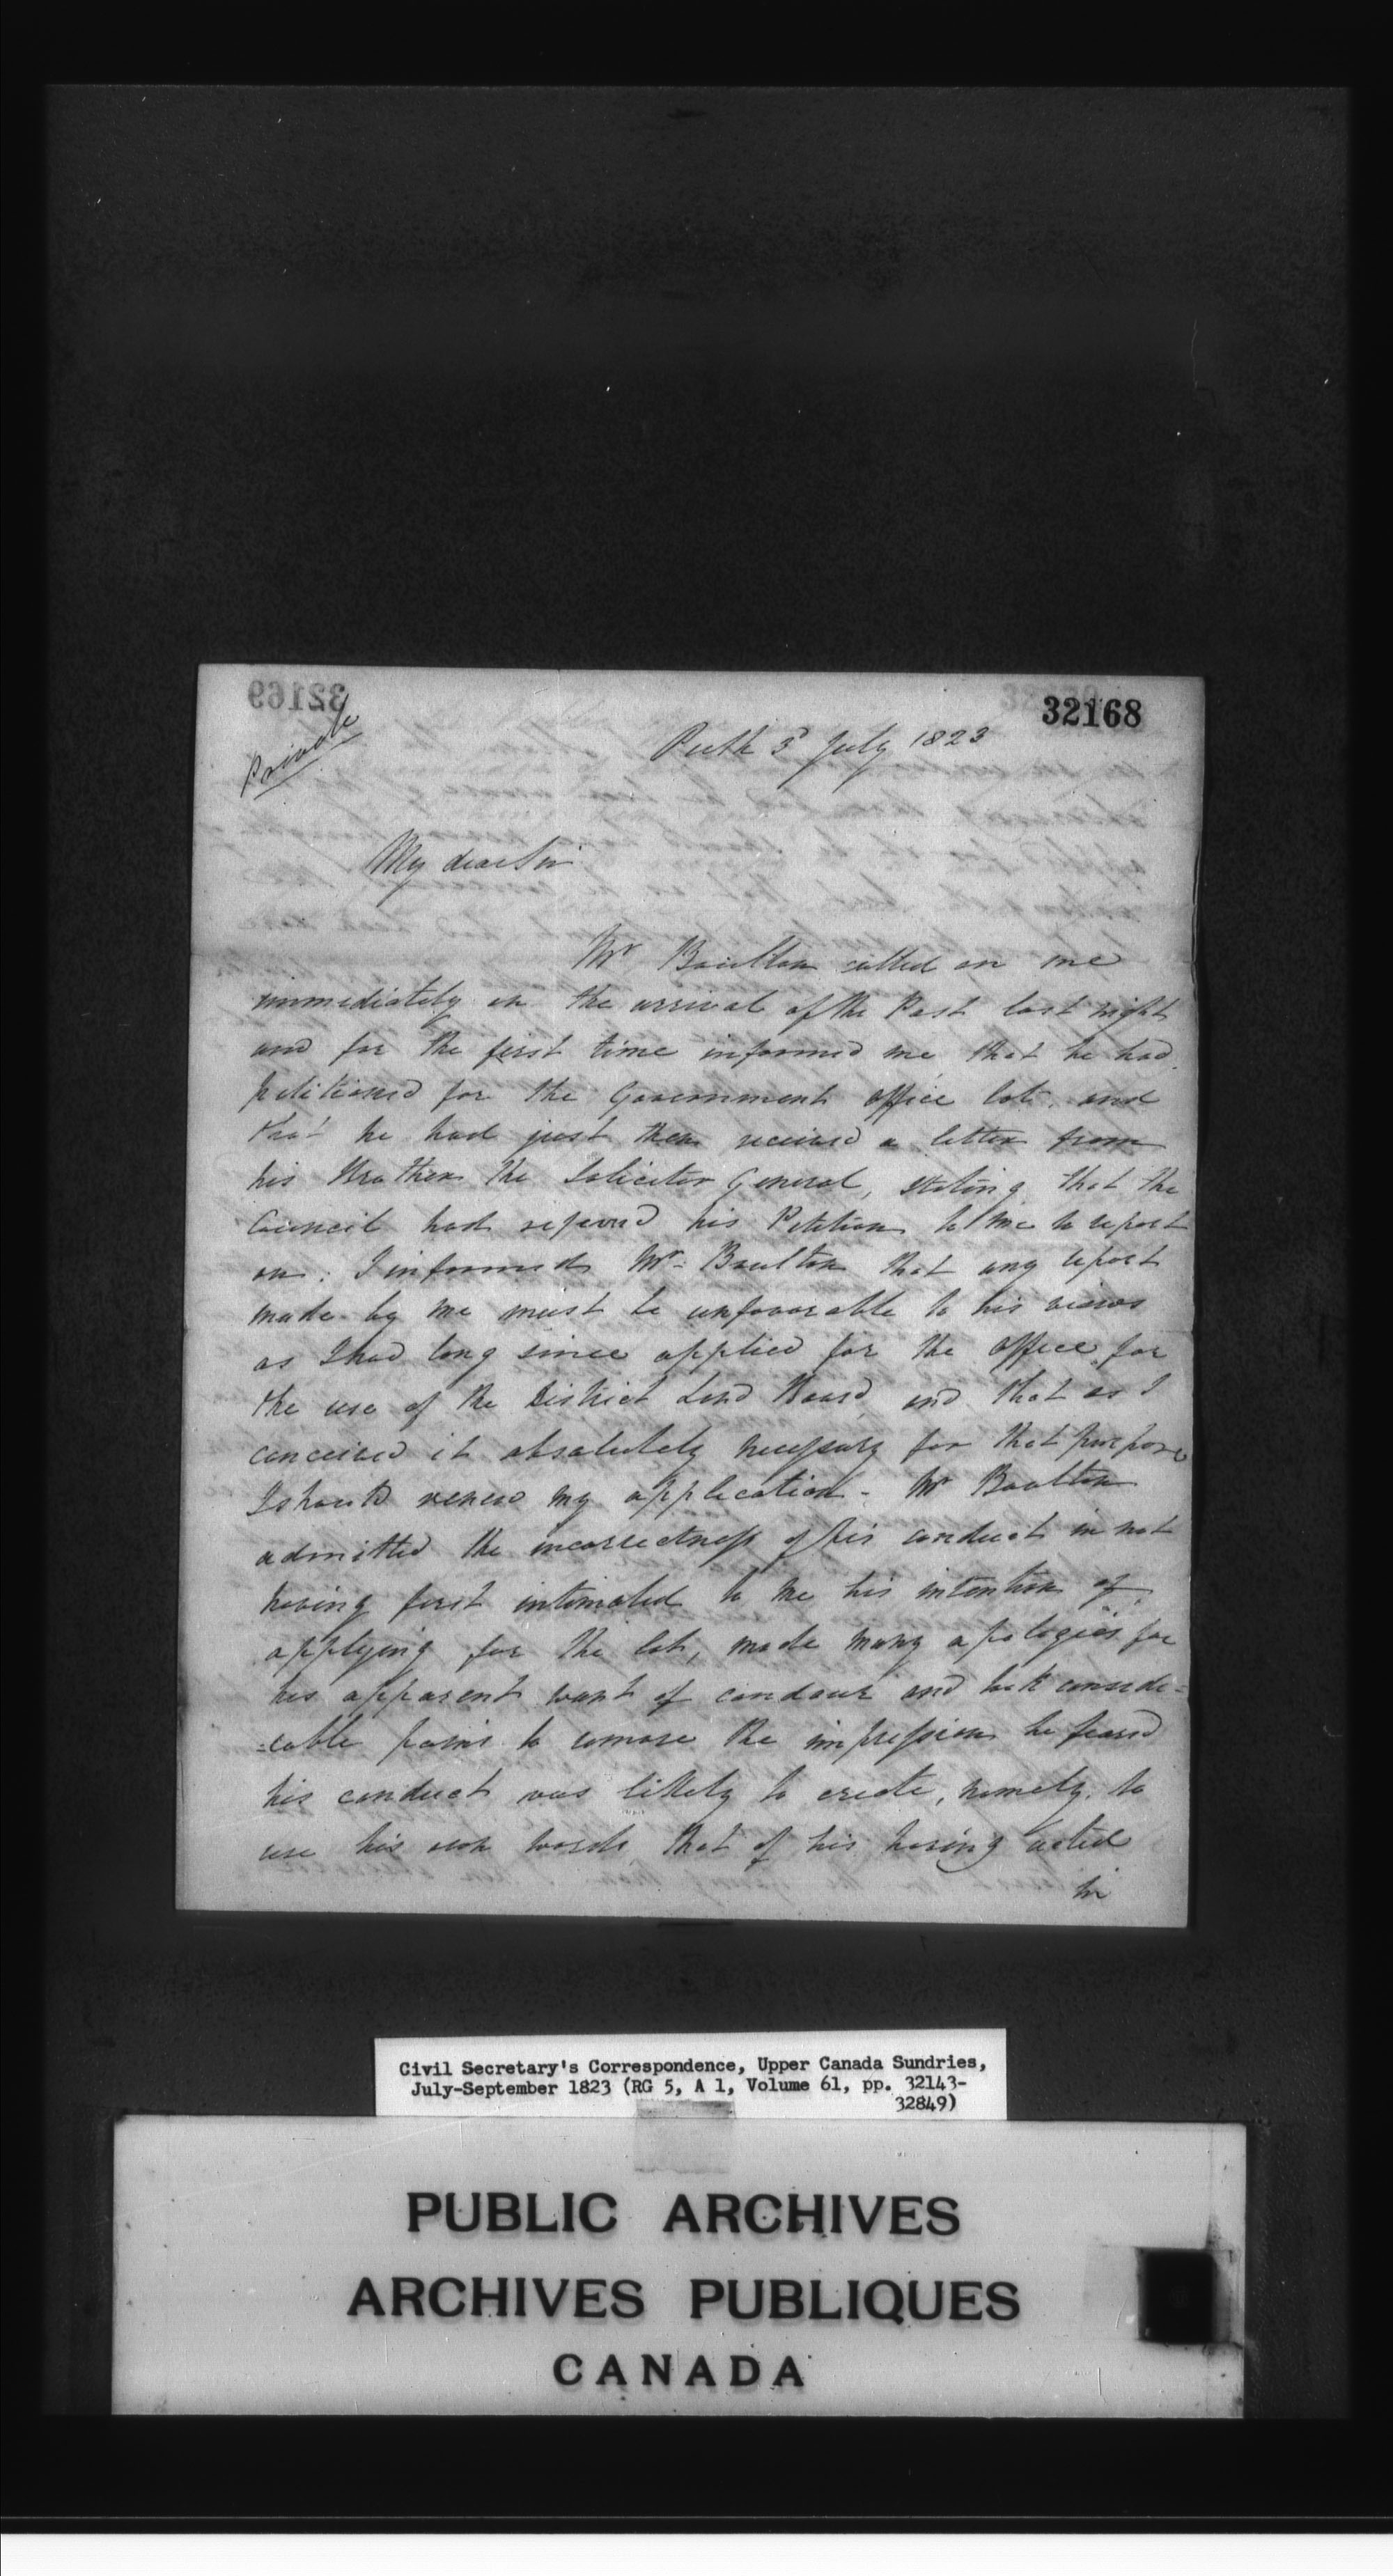 32168
Private
Perth 3 July 1823
My dear Sir
Mr Boulton called on me
immediately on the arrival of the Post last night
and for the first time informed me that he had
petitioned for the Government office lot, and
that he had just then received a letter from
his Brother the Solicitor General, stating that the
Council had referred his Petition to me to report
on: I informed Mr Boulton that any report
made by me must be unfavorable to his views
as I had long since applied for the office for
the use of the District Land Board, and that as I
conceived it absolutely necessary for that purpose
I should renew my application - Mr Boulton
admitted the incorrectness of his conduct in not
having first intimated to me his intention of
applying for the lot, made many apologies for
his apparent want of candour and took conside=
=rable pains to remove the impression he feared
his conduct was likely to create, namely, to
use his own words, that of his having acted
in
Civil Secretary's Correspondence, Upper Canada Sundries,
July-September 1823 (RG 5, A 1, Volume 61, pp. 32143-
32849)
PUBLIC ARCHIVES
ARCHIVES PUBLIQUES
CANADA